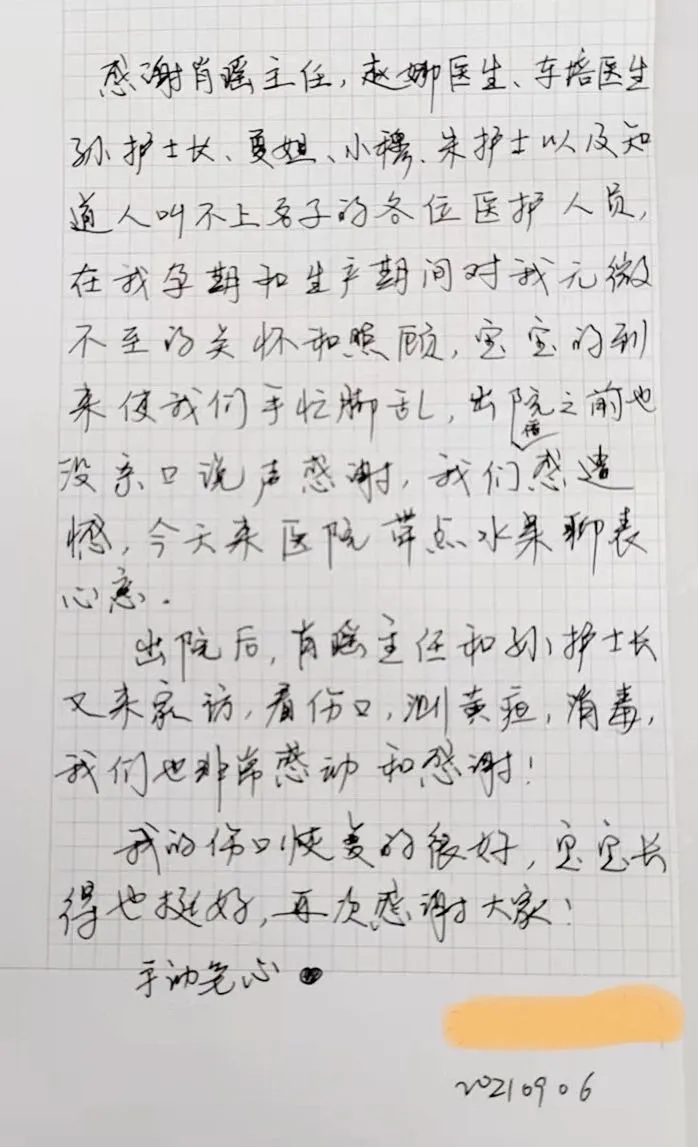 感谢肖瑶主任，赵娜医生、车培医生
孙护士长、夏姐、小穆、朱护士以及知
道人叫不上名子的各位医护人员，
在我孕期和生产期间对我无微
不至的关怀和照顾，宝宝的到
来使我们手忙脚乱，出院之前也
没亲口说声感谢，我们感遗
憾，今天来医院带点水果聊表
心意．
出院后，肖瑶主任和孙护士长
又来家访，看伤口，测黄疸，消毒，
我们也非常感动和感谢！
我的伤口恢复的很好，宝宝长
得也挺好，再次感谢大家！
手动笔心
20210906